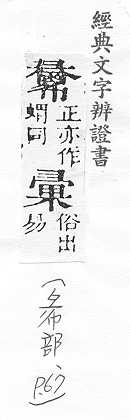 經典文字辨證書
正亦作
蝟同
彙
俗出
易
部
P.67